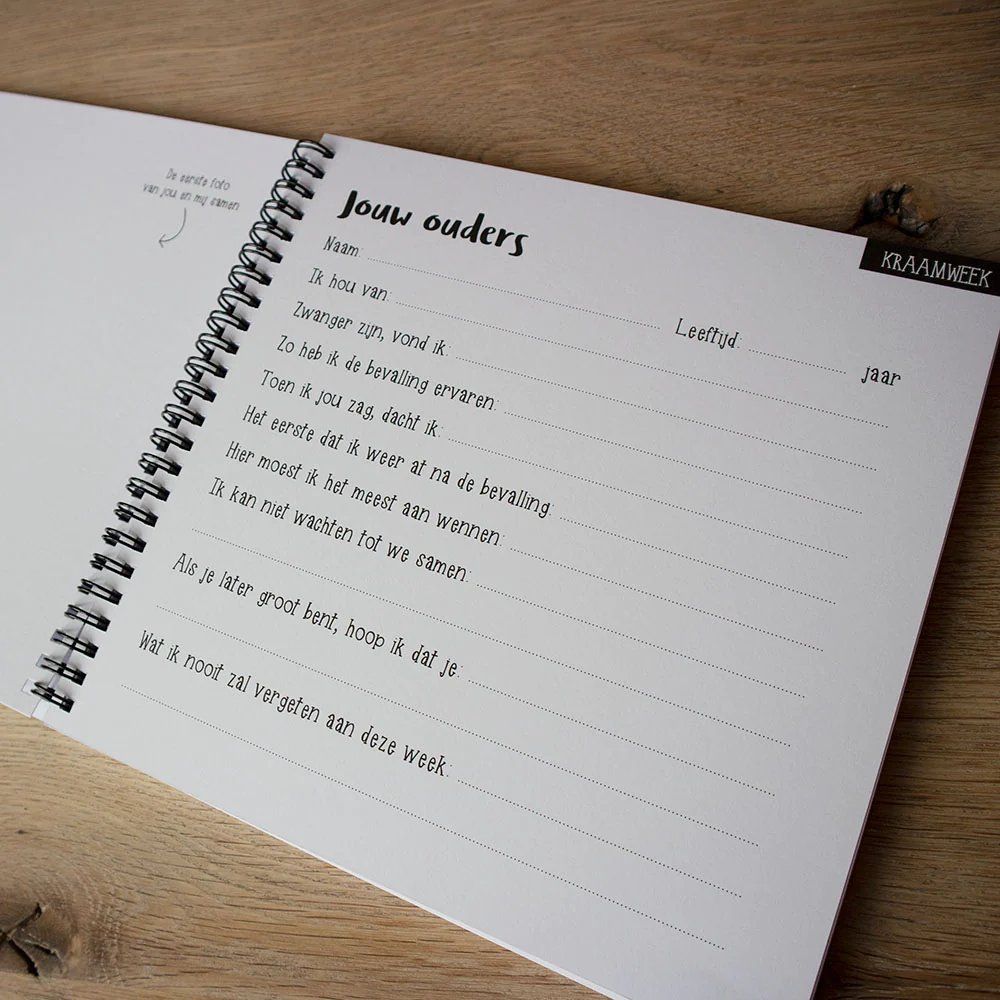 De eerste foto
van jou en mij samen
KRAAMWEEK
Jouw ouders
Naam: Leeftijd: jaar
Ik hou van:
Zwanger zijn, vond ik:
Zo heb ik de bevalling ervaren:
Toen ik jou zag, dacht ik:
Het eerste dat ik weer at na de bevalling:
Hier moest ik het meest aan wennen:
Ik kan niet wachten tot we samen:
Als je later groot bent, hoop ik dat je:
Wat ik nooit zal vergeten aan deze week: